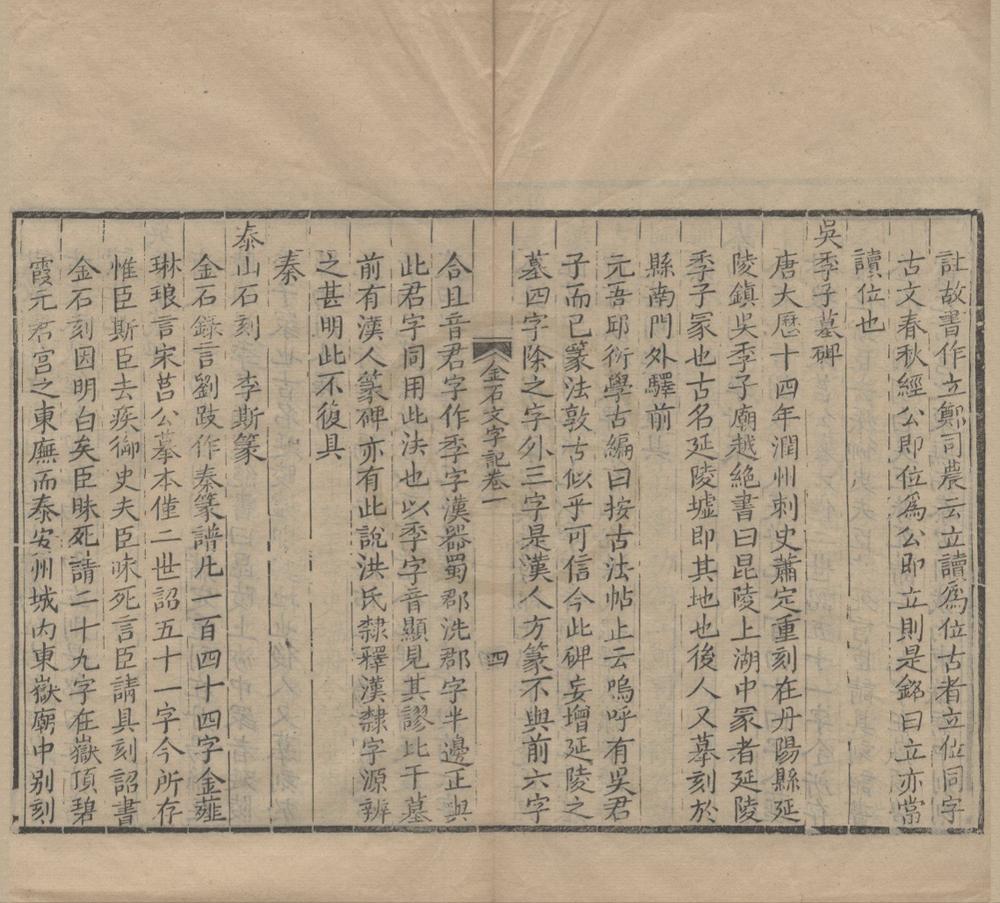 註故書作立鄭司農云立讀爲位古者立位同字
古文春秋經公即位爲公即立則是銘曰立亦當
讀位也
吳季子墓碑
唐大厯十四年潤州刺史蕭定重刻在丹陽縣延
陵鎮吳季子廟越絶書曰毘陵上湖中冢者延陵
季子冢也古名延陵墟即其地也後人又摹刻於
縣南門外驛前
元吾邱衍學古編曰按古法帖止云嗚呼有吳君
子而已篆法敦古似乎可信今此碑妄增延陵之
墓四字除之字外三字是漢人方篆不與前六字
金石文字記卷一
四
合且音君字作季字漢器蜀郡洗郡字半邊正與
此君字同用此法也以季字音顯見其謬比干墓
前有漢人篆碑亦有此說洪氏隸釋漢隸字源辨
之甚明此不復具
秦
泰山石刻 李斯篆
金石錄言劉跂作秦篆譜凡一百四十四字金薤
琳琅言宋莒公摹本僅二世詔五十一字今所存
惟臣斯臣去疾御史夫臣昧死言臣請具刻詔書
金石刻因明白矣臣昧死請二十九字在嶽頂碧
霞元君宮之東廡而泰安州城内東嶽廟中别刻